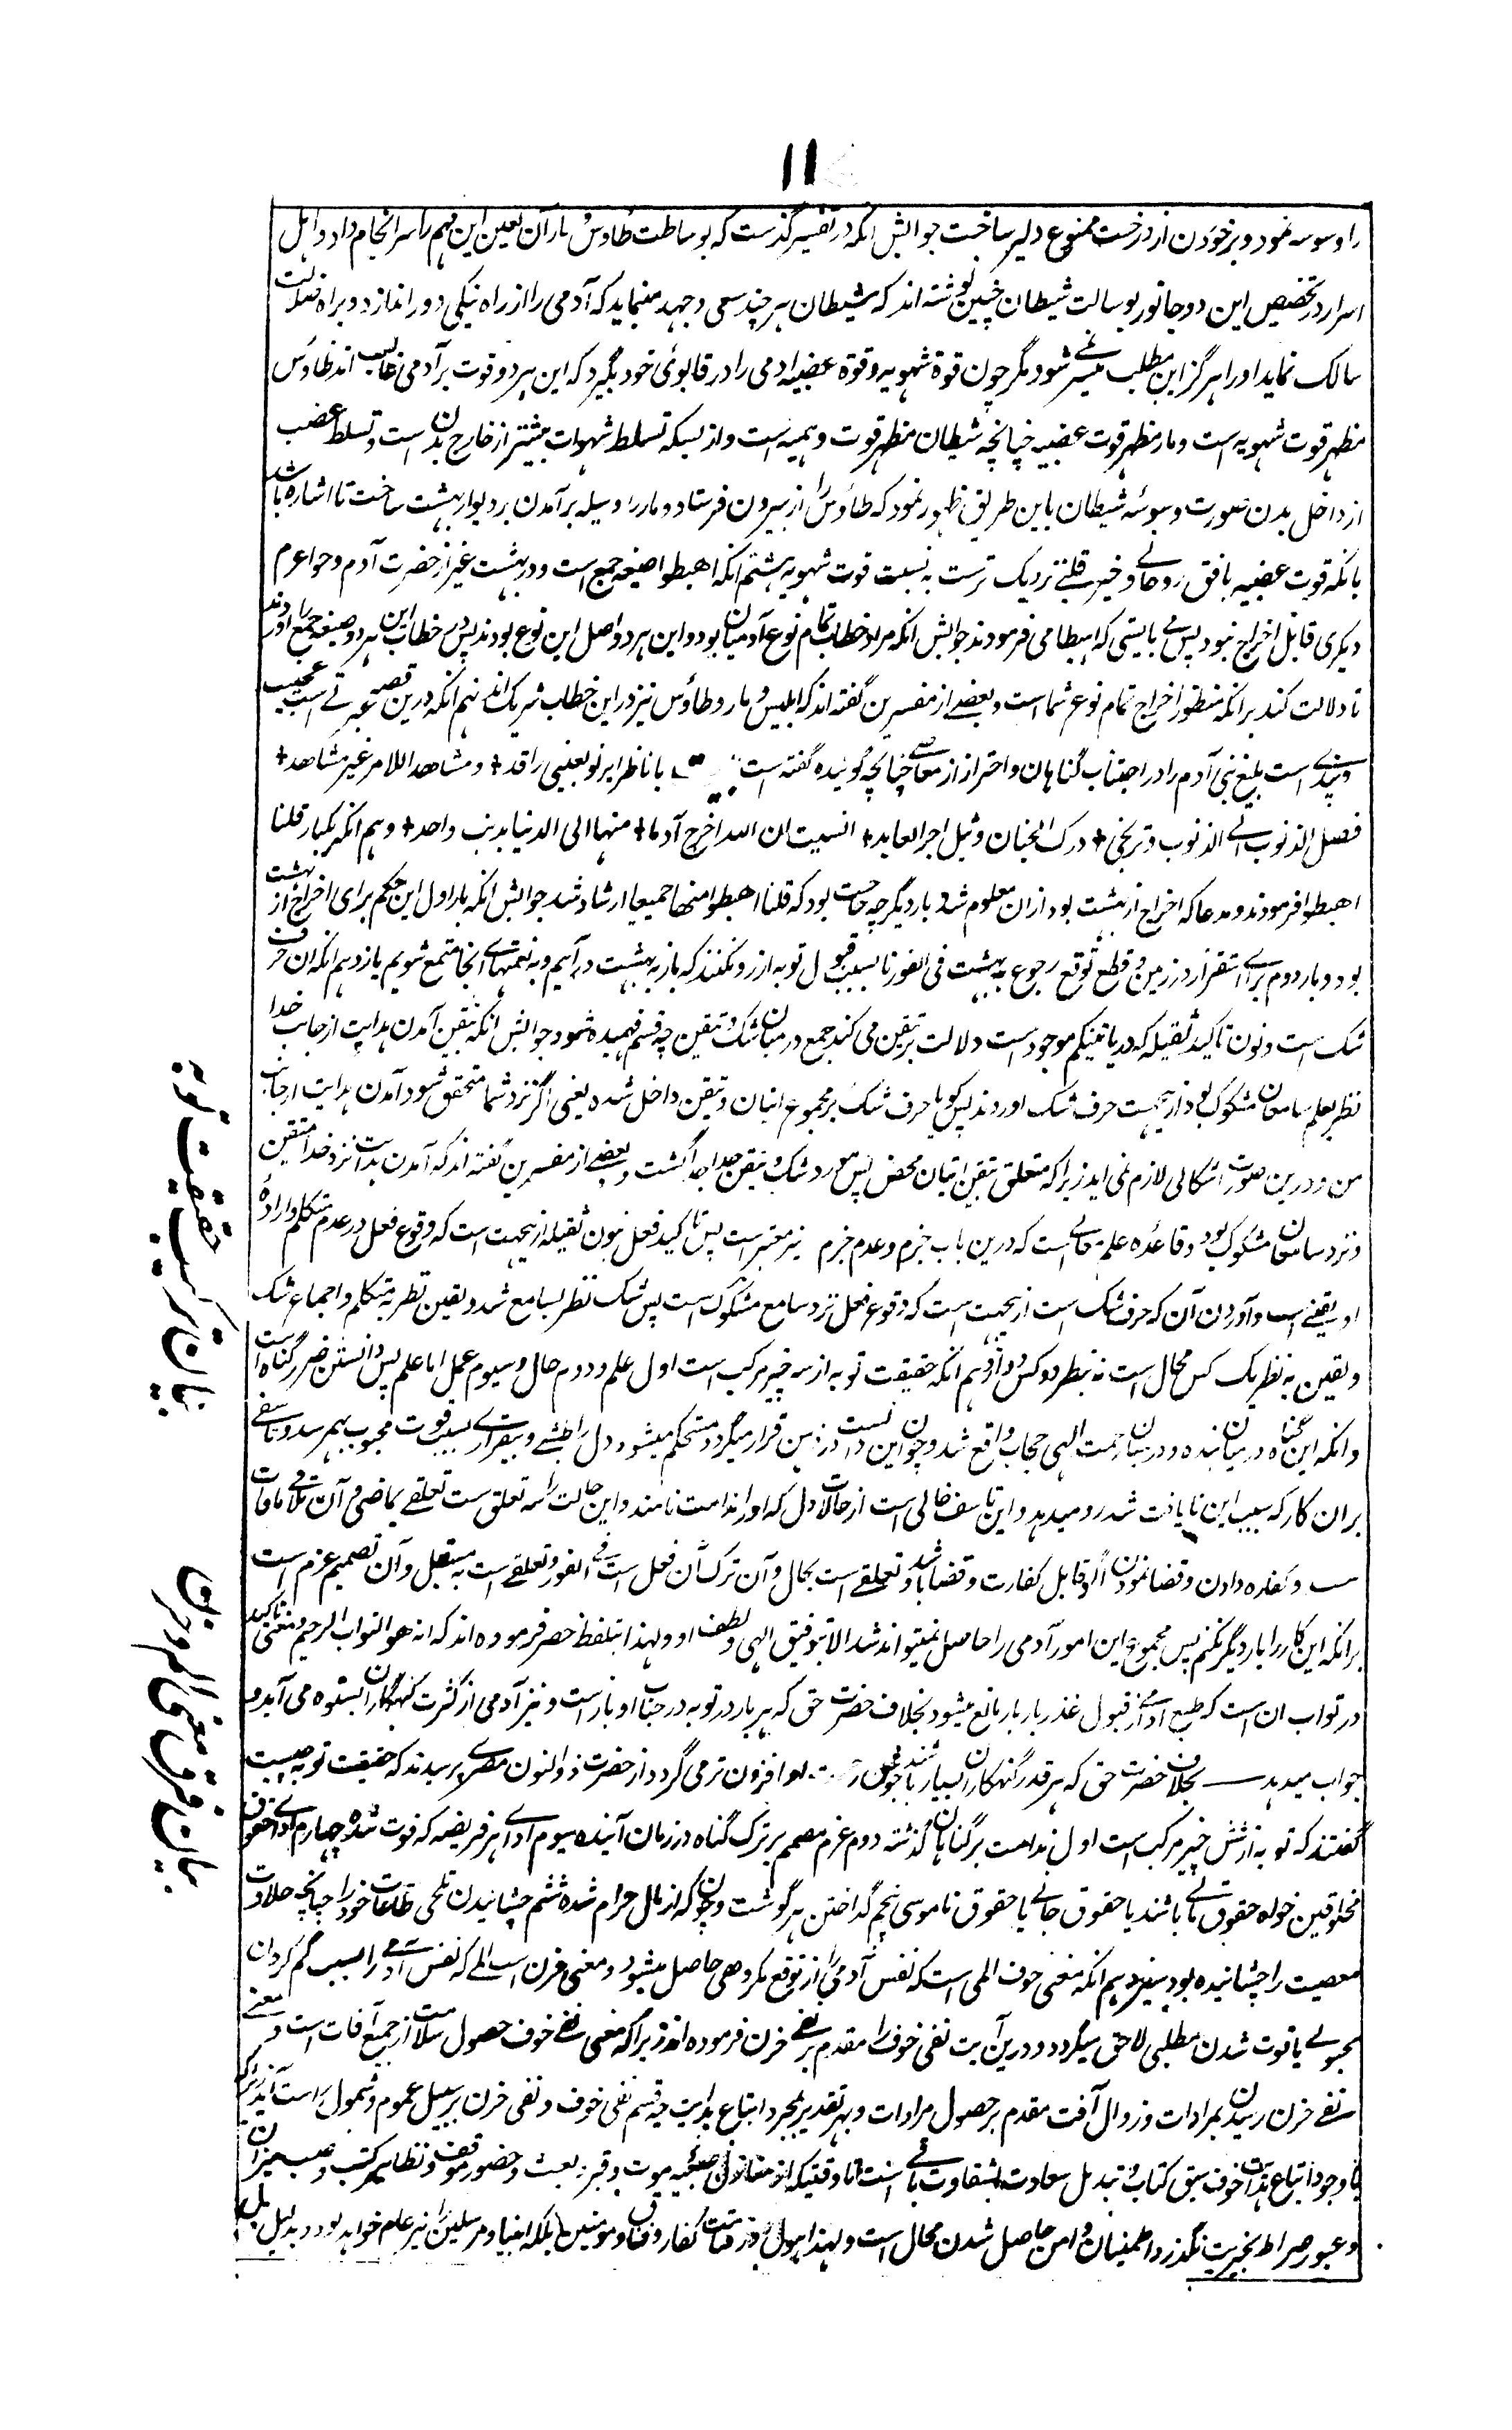 ۱۱
را وسوسه نمود و بر خوردن از درخت ممنوع دلیر ساخت جوابش انکه در تفسیر گذشت که بوساطت طاوس و مار آن لعین این مهم را سرانجام داد و اهل
اسرار در تخصیص این دو جانور بوسالت شیطان چنین نوشته اند که شیطان هر چند سعی و جهد مینماید که آدمی را از راه نیکی دور اندازد و براه ضلالت
سالک نماید او را هرگز این مطلب میسر نمی شود مگر چون قوة شهویه و قوة غضبیه ادمی را در قابوئی خود بگیرد که این هر دو قوت بر آدمی غالب اند طاؤس
مظهر قوت شهویه است و مار مظهر قوت غضبیه چنانچه شیطان مظهر قوت وهمیه است و از بسکه تسلط شهوات بیشتر از خارج بدن است و تسلط غضب
از داخل بدن صورت وسوئه شیطان باین طریق ظهور نمود که طاؤس را از بیرون فرستاد و مار را وسیله برآمدن بر دیوار بهشت ساخت تا اشاره باشد
بانکه قوت غضبیه بافق روحانی و خیر قلبی نزدیک ترست به نسبت قوت شهویه هشتم انکه اهبطوا صیغه جمع است و در بهشت غیر از حضرت آدم و حوا عم
دیگری قابل اخراج نبود پس می بایستی که اهبطا می فرمودند جوابش انکه مراد خطاب تمام نوع آدمیان بود و این هر دو اصل این نوع بودند پس در خطاب این هر دو صیغه جمع را آوردند
تا دلالت کند برانکه منظور اخراج تمام نوع شما است و بعضی از مفسرین گفته اند که ابلیس و مار و طاؤس نیز در این خطاب شریک اند نهم انکه درین قصه عبرتی است عجیب
و پندی است بلیغ بنی آدم را در اجتناب گناهان و احتراز از معاصی چنانچه گوینده گفته است یا ناظرا برنو بعینی راقد + و مشاهدا للامر غیر مشاهد +
فصل الذنوب الی الذنوب و ترتجی + درک الجنان و نیل اجر العابد + انسیت ان الله اخرج آدما + منها الی الدنیا بذنب واحد + دهم انکه یکبار قلنا
اهبطوا فرمودند و مدعا که اخراج از بهشت بود ازان معلوم شد بار دیگر چه حاجت بود که قلنا اهبطوا منها جمیعا ارشاد شد جوابش انکه بار اول این حکم برای اخراج از بهشت
بود و بار دوم برای استقرار در زمین و قطع توقع رجوع به بهشت فی الفور تا بسبب قبول توبه ارزو نکنند که باز به بهشت درآییم و به نعمتهای آنجا متمتع شویم یازدهم انکه ان حرف
شک است و نون تاکید ثقیله که در یاتینکم موجود است دلالت بر تیقن می کند جمع در میان شک و تیقن چه قسم فهمیده شود جوابش انکه تیقن آمدن هدایت از جانب خدا
نظر بعلم سامعان مشکوک بود ازین جهت حرف شک اوردند پس گویا حرف شک بر مجموع اتیان و تیقن داخل شده یعنی اگر نزد شما متحقق شود آمدن هدایت از جانب
من و درین صورت اشکالی لازم نمی اید زیرا که متعلق تیقن اتیان محض پس مورد شک و تیقن جدا جدا گشت و بعضی از مفسرین گفته اند که آمدن هدایت نزد خدا متیقن
و نزد سامعان مشکوک بود و قاعده علم معانی است که درین باب جزم و عدم جزم نیز معتبر است پس تاکید فعل بنون ثقیله ازین جهت است که وقوع فعل در عدم متکلم و اراده
او یقینی است و آوردن آن که حرف شک است ازین جهت است که وقوع فعل نزد سامع مشکوک است پس شک نظر بسامع شد و یقین نظر به متکلم و اجماع شک
و یقین به نظر یک کس محال است نه بنظر دو کس دوازدهم انکه حقیقت توبه از سه چیز مرکب است اول علم و دوم حال و سیوم عمل اما علم پس دانستن ضرر گناه است
و انکه این گناه در میان بنده و در میان رحمت الهی حجاب واقع شد و چون این دانست در ذهن قرار میگیرد و مستحکم میشود دل را طپشی و بیقراری بسبب فوت محبوب بهم رسد و تاسفی
بران کار که سبب این نایافت شد رو میدهد و این تاسف حالی است از حالات دل که او را ندامت نامند و این حالت را سه تعلق است تعلقی بماضی و آن تلافی مافات
ست و کفاره دادن و قضا نمودن اگر قابل کفارت و قضا باشد و تعلقی است بحال و آن ترک آن فعل است فی الفور و تعلقی است به مستقبل و آن تصمیم عزم است
برانکه این کار را بار دیگر نکنم پس مجموع این امور آدمی را حاصل نمیتواند شد الا بتوفیق الهی و لطف او و لهذا بلفظ حصر فرموده اند که انه هو التواب الرحیم و معنی تاکید
در تواب ان است که طبع ادمی از قبول عذر بار بار مانع میشود بخلاف حضرت حق که هر بار در توبه در جناب او باز است و نیز آدمی از کثرت گنهگاران بستوه می آید و
جواب میدهد بخلاف حضرت حق که هر قدر گنهکاران بسیار باشند او افزون تر می گردد از حضرت ذوالنون مصری پرسیدند که حقیقت توبه چیست
گفتند که توبه از شش چیز مرکب است اول ندامت بر گناهان گذشته دوم عزم مصمم بر ترک گناه در زمان آینده سیوم ادای هر فریضه که فوت شده چهارم ادای حقوق
مخلوقین خواه حقوق مالی باشند یا حقوق جانی یا حقوق ناموسی پنجم گداختن هر گوشت و خون که از مال حرام شده ششم چشانیدن تلخی طاعات خود را چنانچه حلاوت
معصیت را چشانیده بود سیزدهم انکه معنی خوف المی است که نفس آدمی را از توقع مکروهی حاصل میشود و معنی حزن المی که نفس آدمی را بسبب گم کردن
محبوبی یا فوت شدن مطلبی لاحق میگردد و درین آیت نفی خوف را مقدم بر نفی حزن فرموده اند زیرا که معنی نفی خوف حصول سلامت از جمیع آفات است و معنی
نفی حزن رسیدن بمرادات و زوال آفت مقدم بر حصول مرادات و بهر تقدیر بمجرد اتباع هدایت چه قسم نفی خوف و نفی حزن بر سبیل عموم و شمول راست آید زیرا که
با وجود اتباع هدایت خوف سبق کتاب و تبدیل سعادت بشقاوت باقی است تا وقتیکه از موت و قبر و بعث و حضور موقف و تطایر کتب و نصب میزان
و عبور صراط بخیریت نگذرد اطمینان و امن حاصل شدن محال است و لهذا هول قیامت کفار و فساق و مومنین را بلکه انبیا و مرسلین را نیز عام خواهد بود بدلیل
بیان ترکیب حقیقت توبه
بیان فرق معنی خوف و حزن